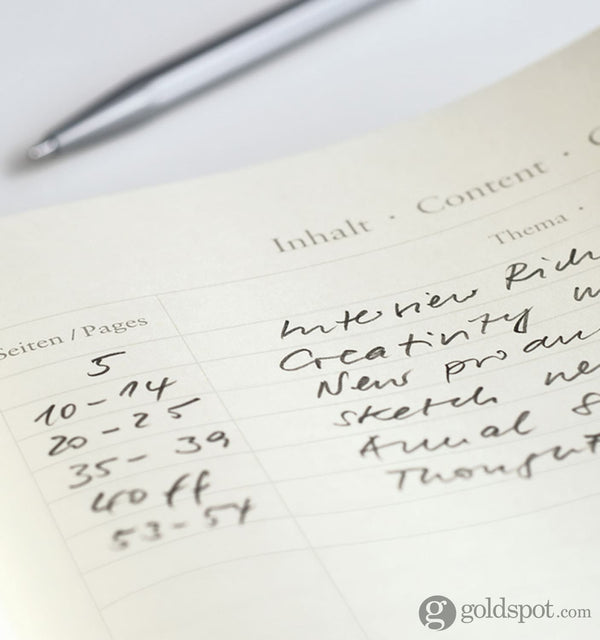 Inhalt · Content ·
Thema ·
Seiten / Pages
5 Interview
10 - 14 Creativity
20 - 25 New
35 - 39 sketch
40 ff Annual
53 - 54 Thought
goldspot.com